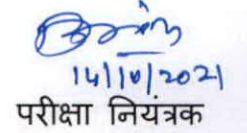 14/10/2021
परीक्षा नियंत्रक